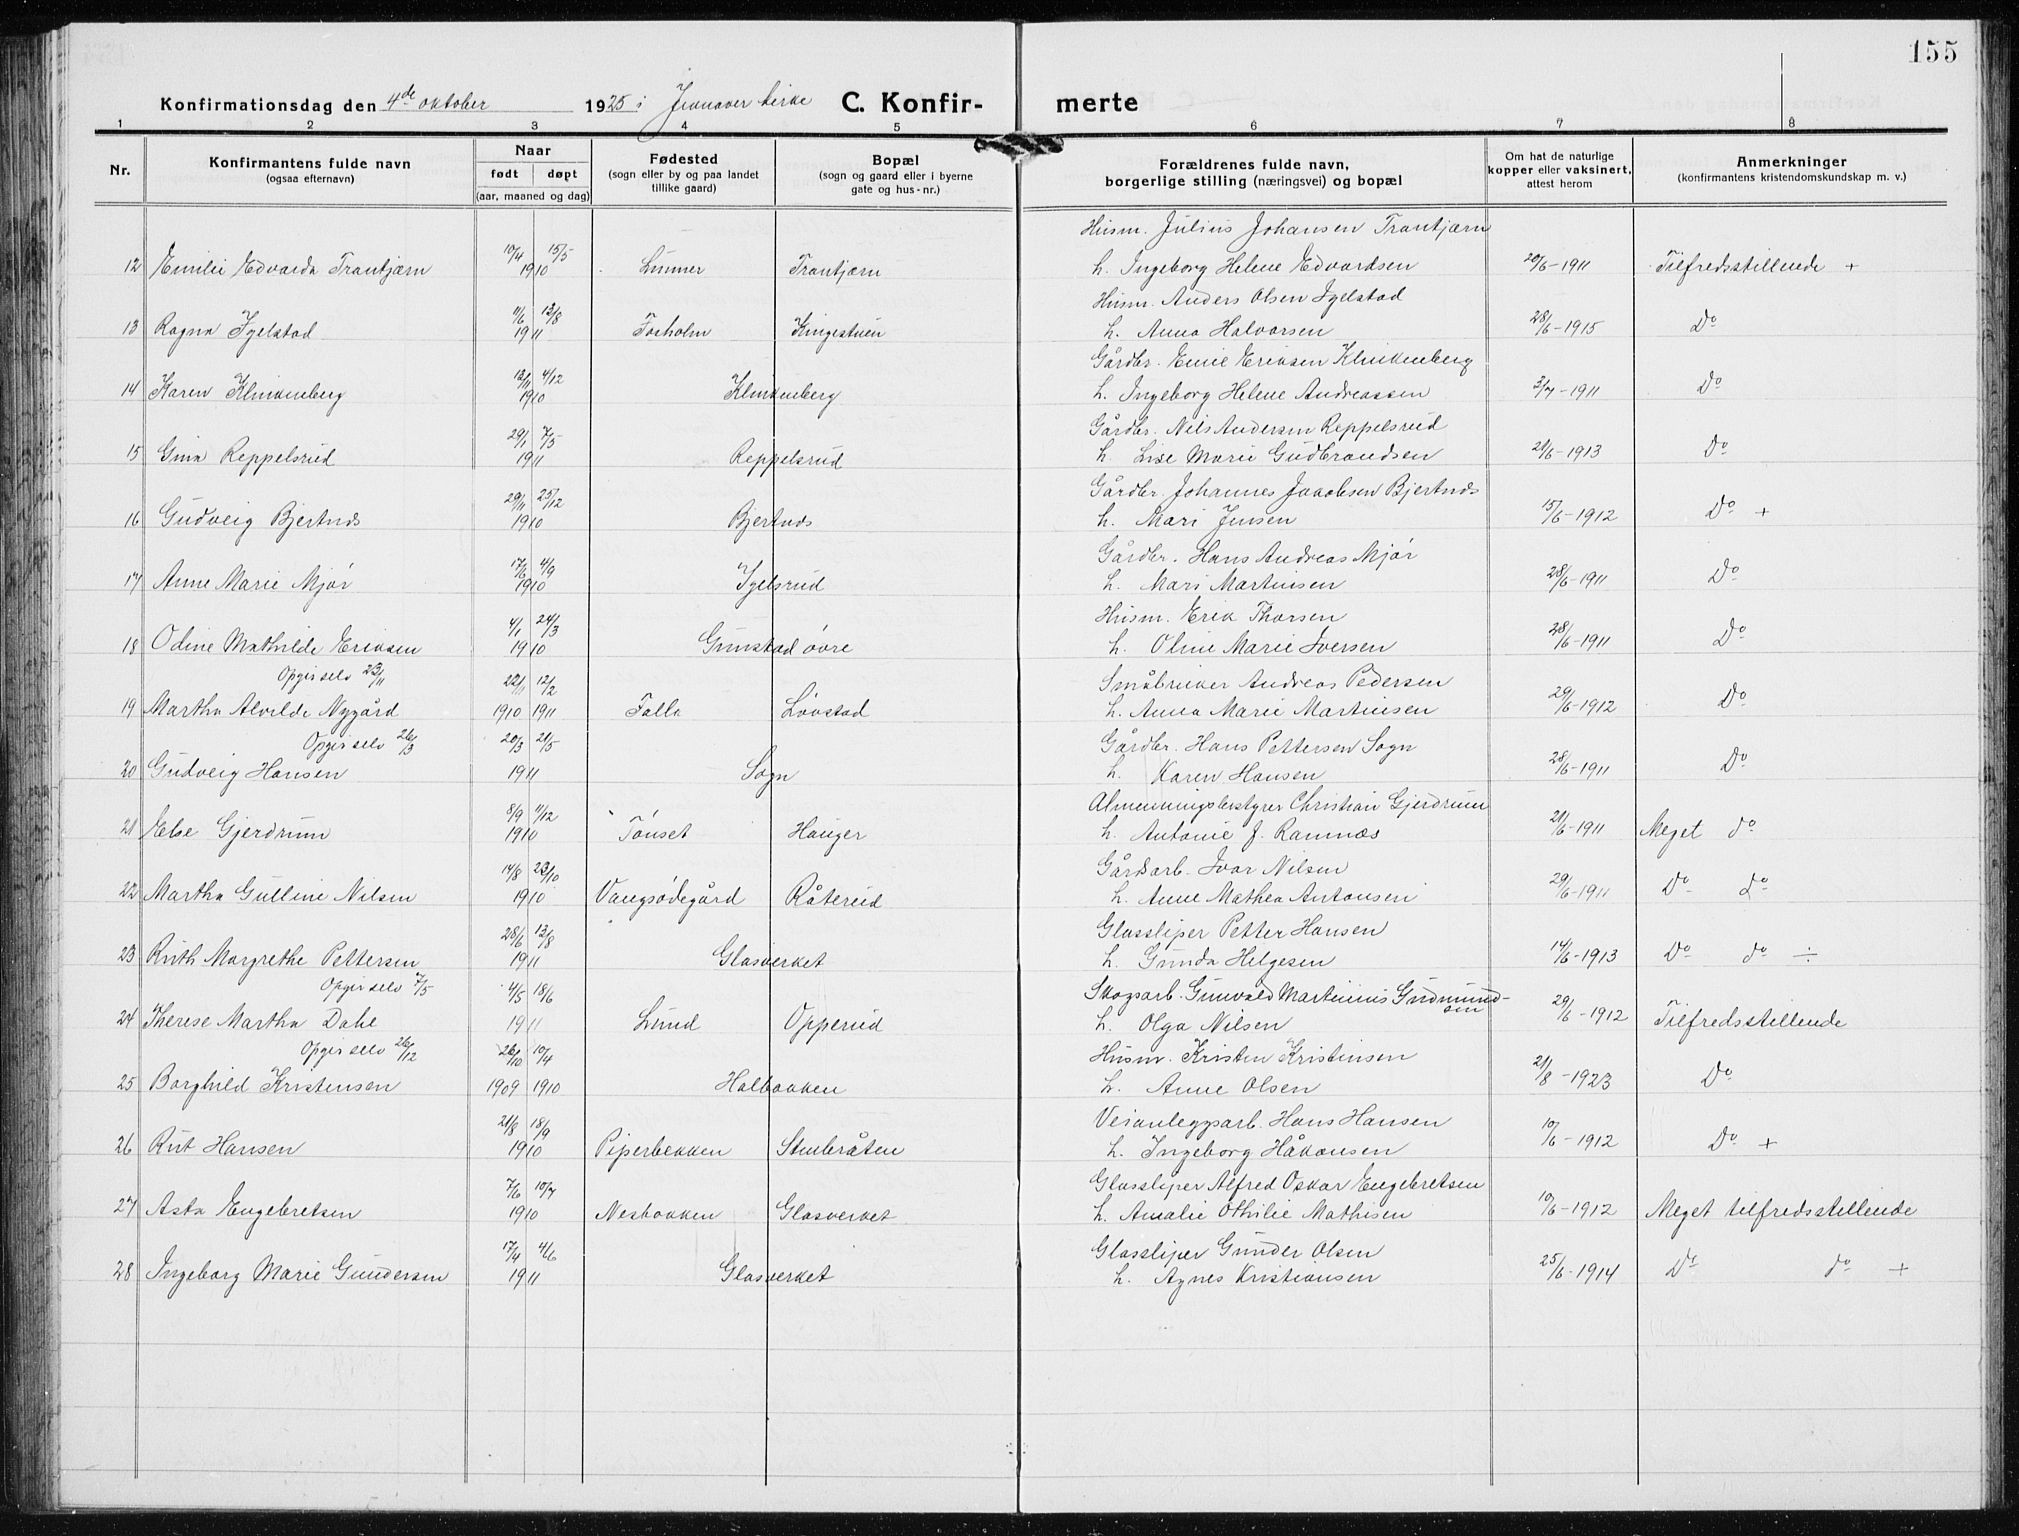 155
Konfirmationsdag den 4de oktober 1925 i Jevnaker kirke C. Konfir- merte
1 2 3 4 5 6 7 8
Nr. Konfirmantens fulde navn (ogsaa efternavn) Naar født døpt (aar, maaned og dag) Fødested (sogn eller by og paa landet tillike gaard) Bopæl (sogn og gaard eller i byerne gate og hus-nr.) Forældrenes fulde navn, borgerlige stilling (næringsvei) og bopæl Om hat de naturlige kopper eller vaksinert, attest herom Anmerkninger (konfirmantens kristendomskundskap m. v.)
Husm. Julius Johansen Trantjærn
12 Emilie Edvarda Trantjærn 10/4 15/5 1910 Lunner Trantjærn h. Ingeborg Helene Edvardsen 20/6-1911 Tilfredsstillende +
Husm. Anders Olsen Igelstad
13 Ragna Igelstad 11/6 13/8 1911 Toxholm Kingestuen h. Anna Halvorsen 28/6-1915 Do
Gårdbr. Emil Eriksen Klinkenberg
14 Karen Klinkenberg 12/11 4/12 1910 Klinkenberg h. Ingeborg Helene Andreassen 3/7-1911 Do
Gårdbr. Nils Andersen Reppelsrud
15 Gina Reppelsrud 29/1 7/5 1911 Reppelsrud h. Lise Marie Gudbrandsen 21/6-1913 Do
Gårdbr. Johannes Jakobsen Bjertnds
16 Gudveig Bjertnds 29/11 25/12 1910 Bjertnds h. Mari Jensen 15/6-1912 Do +
Gårdbr. Hans Andreas Mjør
17 Anne Marie Mjør 17/6 4/9 1910 Igelsrud h. Mari Martinsen 28/6-1911 Do
Husm. Erik Thorsen
18 Odine Mathilde Eriksen 4/1 24/3 1910 Grinstad øvre h. Oline Marie Iversen 28/6-1911 Do
Opgir selv 23/11 Småbruker Andreas Pedersen
19 Martha Alvilde Nygård 22/11 12/2 1910 1911 Falla Løvstad h. Anna Marie Martinsen 29/6-1912 Do
Opgir selv 26/3 Gårdbr. Hans Pettersen Sogn
20 Gudveig Hansen 20/3 21/5 1911 Sogn h. Karen Hansen 28/6-1911 Do
Almenningsbestyrer Christian Gjerdrum
21 Else Gjerdrum 8/9 11/12 1910 Tønset Hauger h. Antonie J. Ramnæs 21/6-1911 Meget do
Gårdsarb. Ivar Nilsen
22 Martha Gulline Nilsen 14/8 23/10 1910 Vangsødegård Råterud h. Anne Mathea Antonsen 29/6-1911 Do do
Glassliper Petter Hansen
23 Ruth Margrethe Pettersen 28/6 13/8 1911 Glasverket h. Gunda Helgesen 14/6-1913 Do do ÷
Opgir selv 7/5 Skogsarb. Gunvald Martinius Gudmund-sen
24 Therese Martha Dahl 4/5 18/6 1911 Lund Opperud h. Olga Nilsen 29/6-1912 Tilfredsstillende
Opgir selv 26/12 Husm. Kristen Kristinsen
25 Borghild Kristensen 26/10 10/4 1909 1910 Halbakken h. Anne Olsen 21/8-1923 Do
Veianleggsarb. Hans Hansen
26 Rut Hansen 21/8 18/9 1910 Piperbekken Stubråten h. Ingeborg Håkonsen 10/6-1912 Do +
Glassliper Alfred Oskar Engebretsen
27 Asta Engebretsen 7/6 10/7 1910 Nesbakken Glasverket h. Amalie Othilie Mathisen 10/6-1912 Meget tilfredsstillende
Glassliper Gunder Olsen
28 Ingeborg Marie Gundersen 17/4 4/6 1911 Glasverket h. Agnes Kristiansen 25/6-1914 Do do +